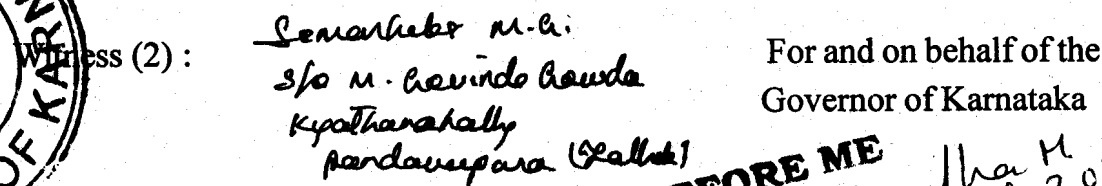 Witness (2) :
Somashekar M.G.
S/o M. Govinda Gowda
Kyathanahally
Pandavapura (Talluk)
For and on behalf of the
Governor of Karnataka
BEFORE ME
OF KARN